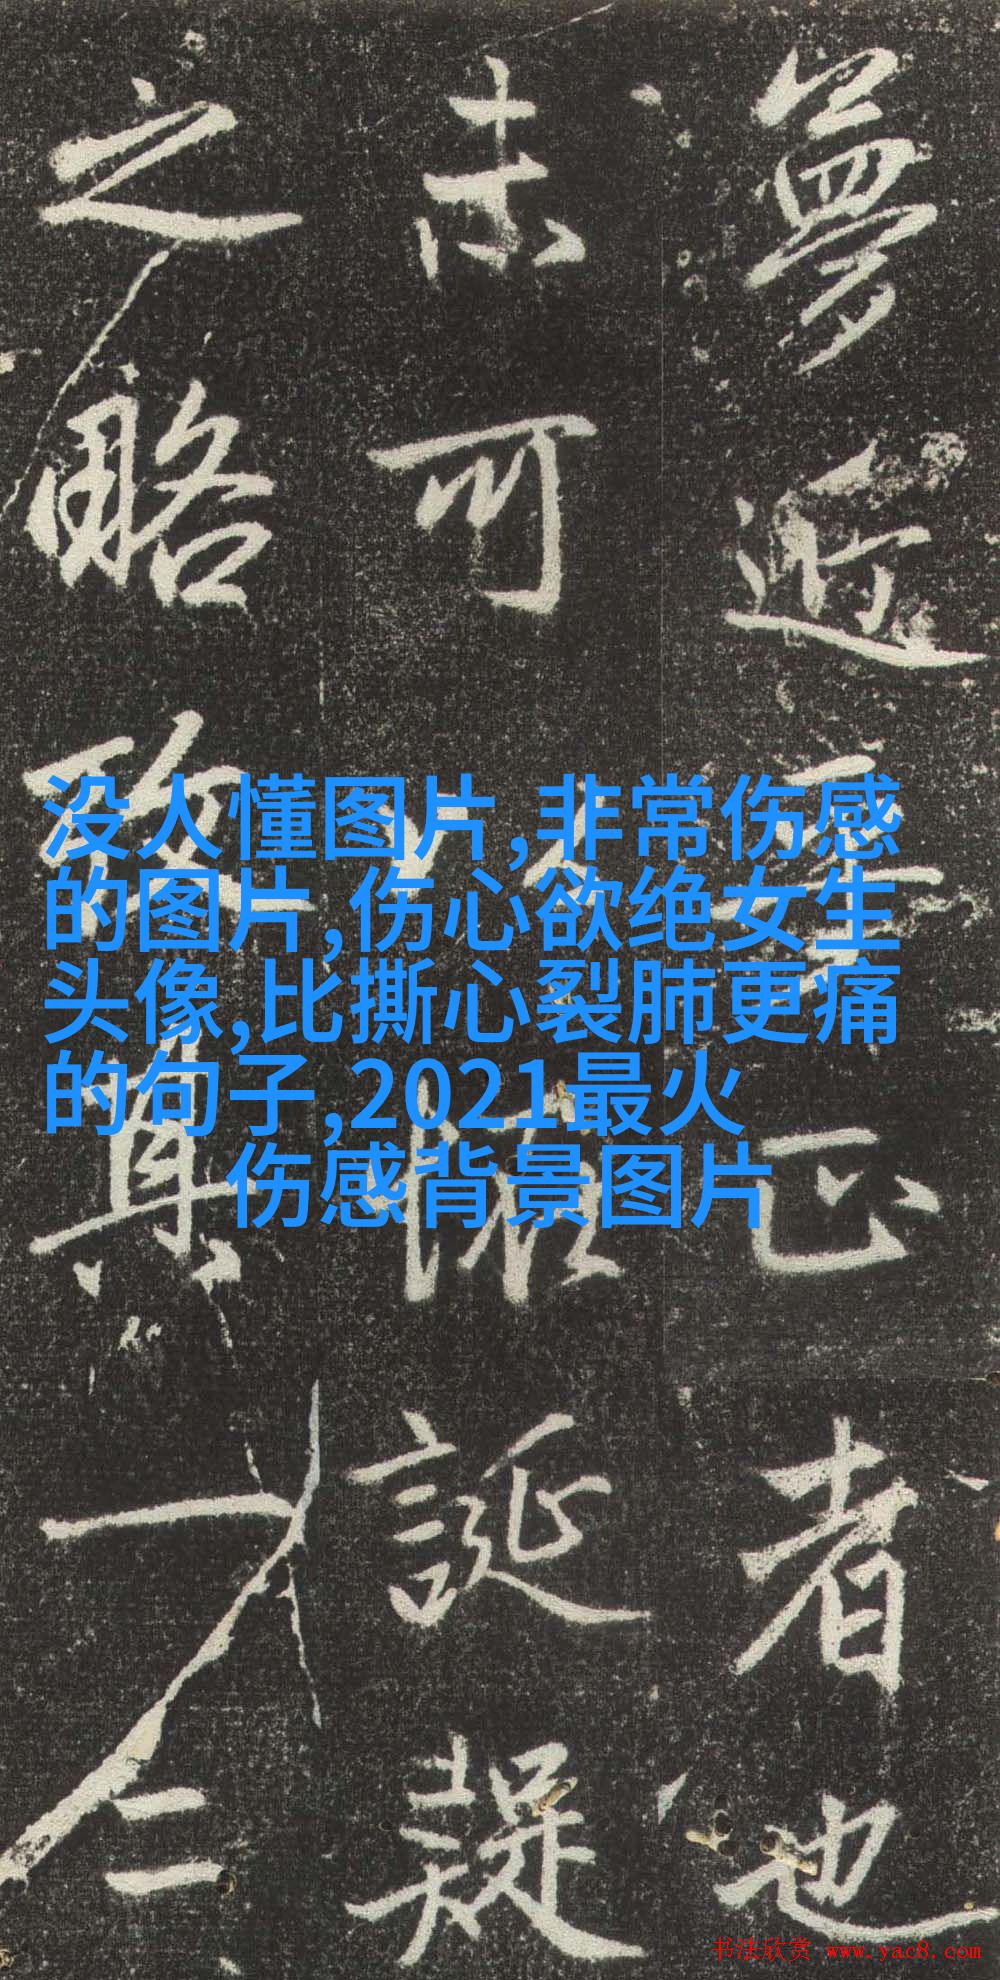 夢近正者也
未可以誕疑
之略
没人懂图片,非常伤感
的图片,伤心欲绝女生
头像,比撕心裂肺更痛
的句子,2021最火
伤感背景图片
书法欣赏 www.yac8.com